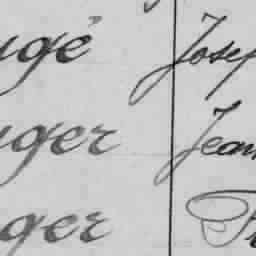 ugé Josep
uger Jean
ger